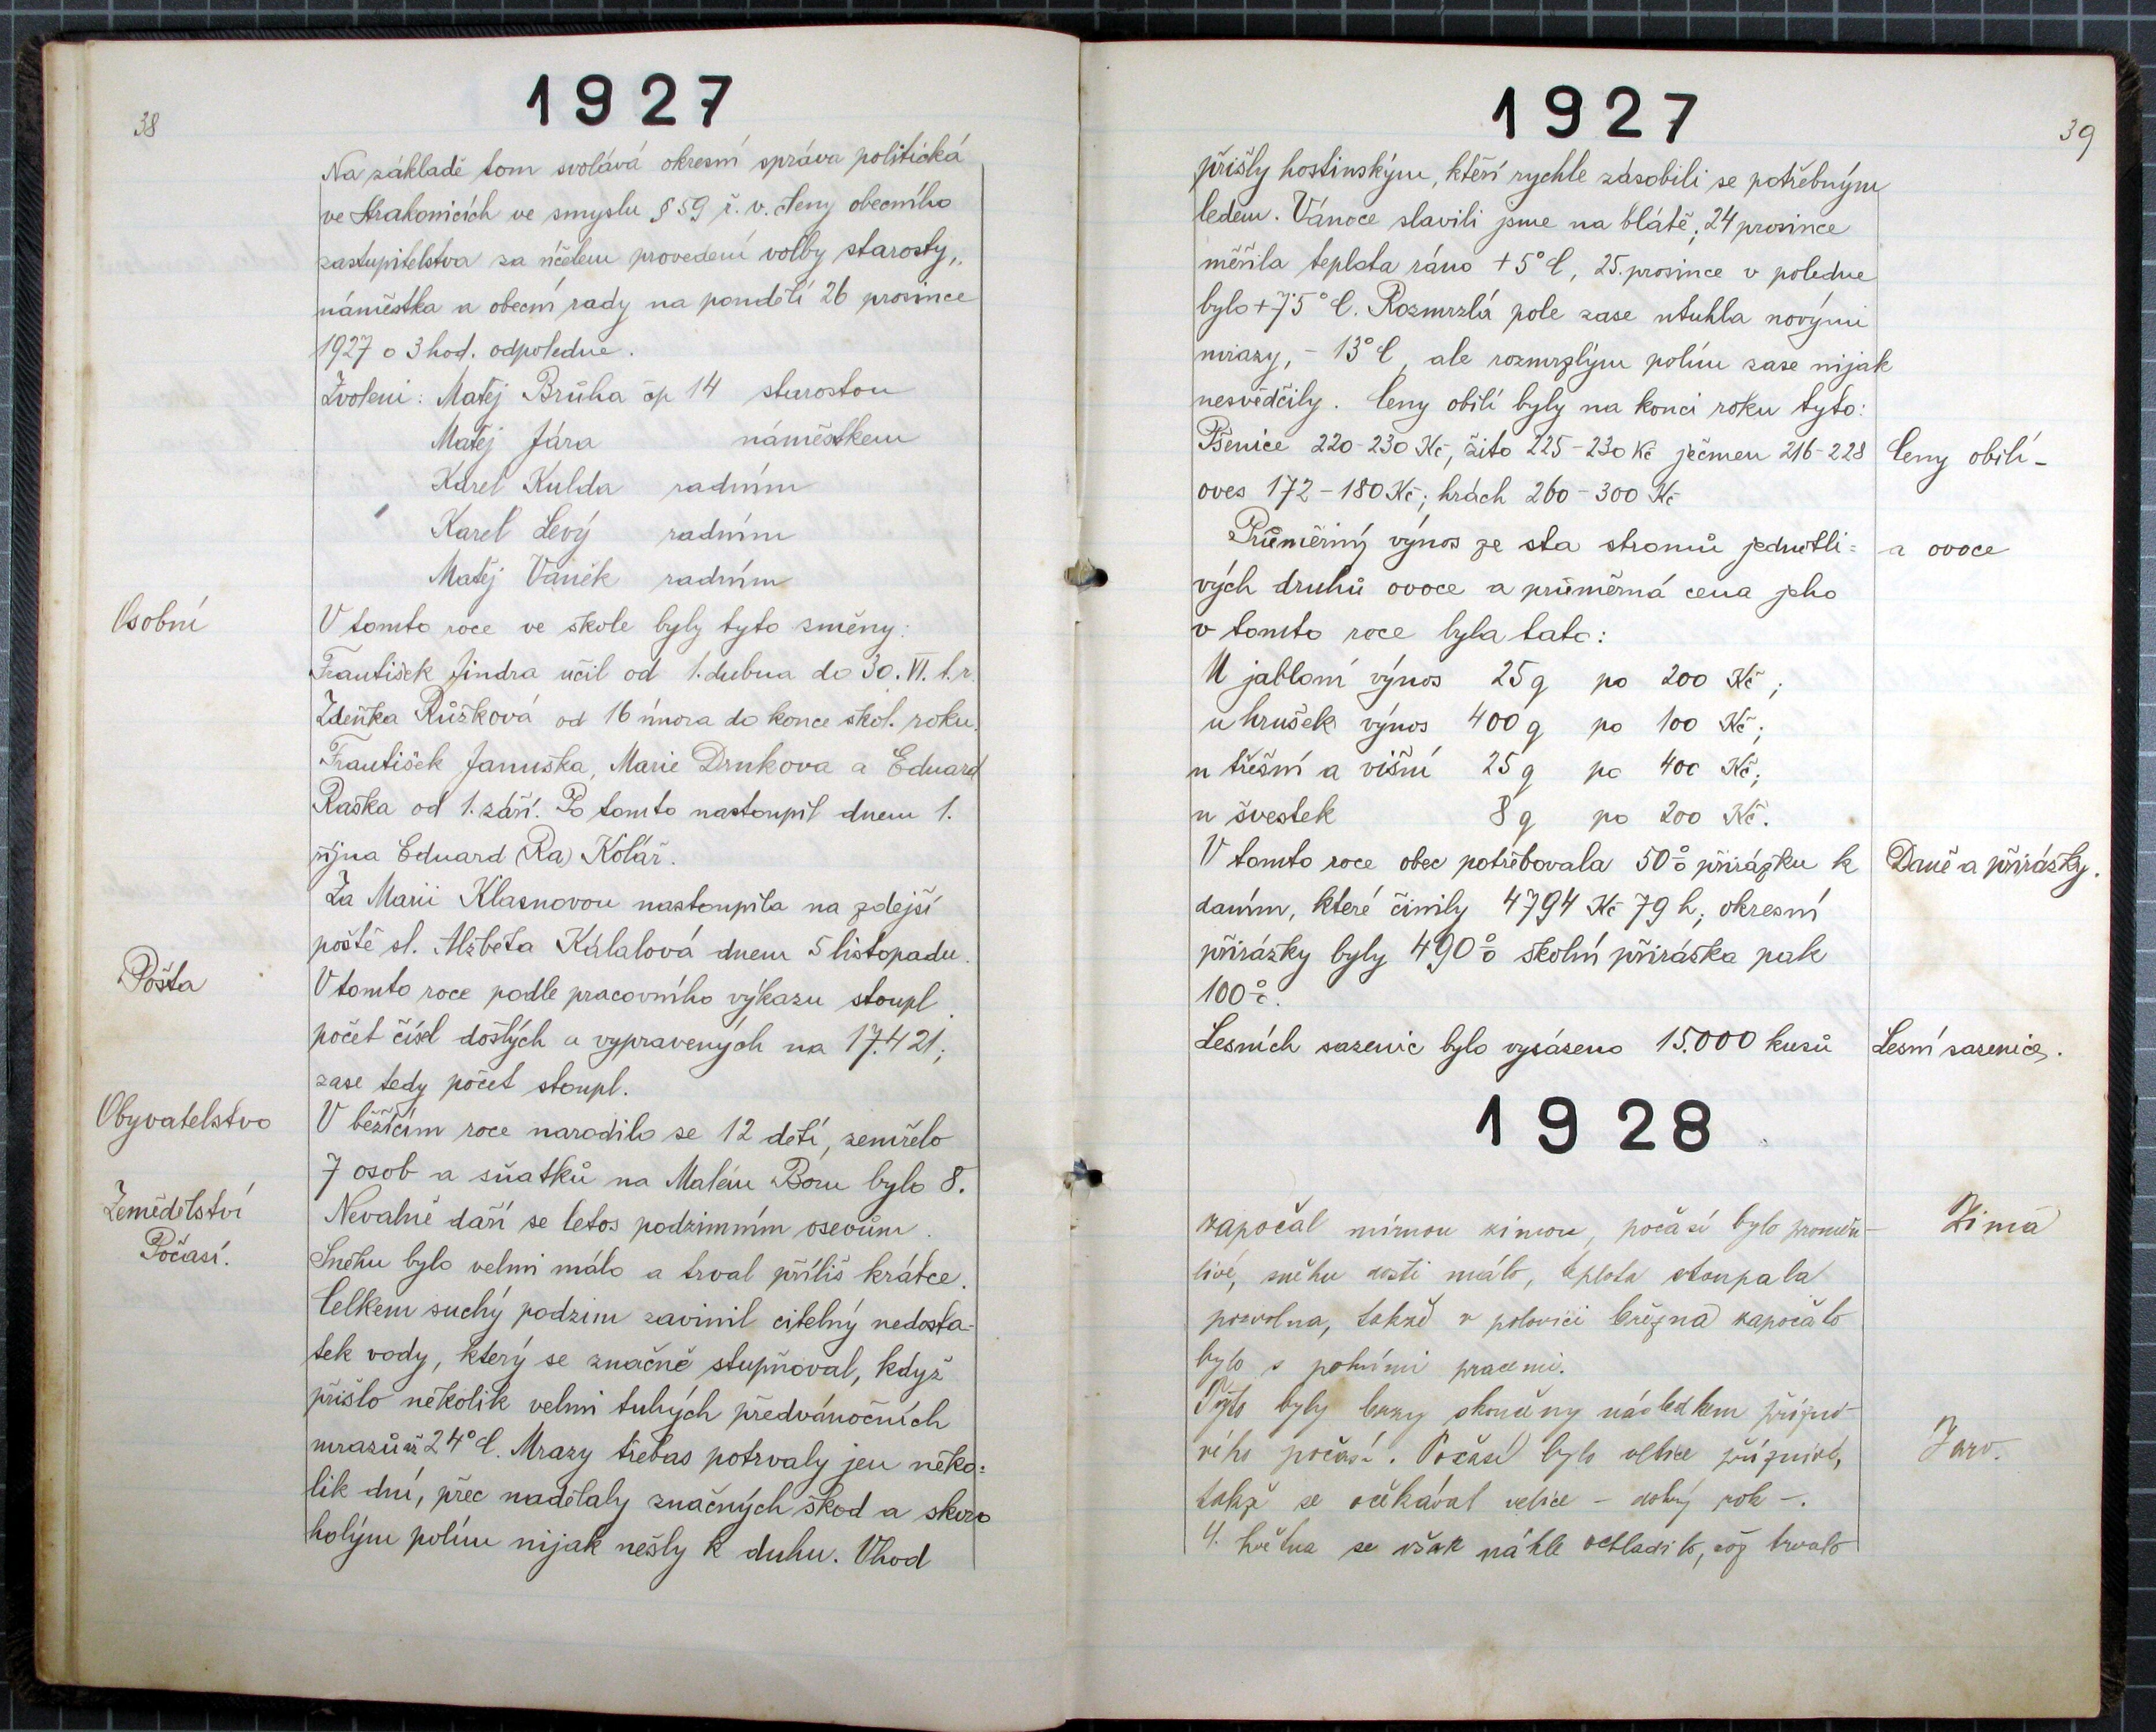 38
1927
Na základě tom svolává okresní správa politická
ve Strakonicích ve smyslu § 59 ř. v. členy obecního
zastupitelstva za účelem provedení volby starosty,
náměstka a obecní rady na pondělí 26 prosince
1927 o 3 hod. odpoledne.
Zvoleni: Matěj Brůha čp 14 starostou
Matěj Jára náměstkem
Karel Kulda radním
Karel Levý radním
Matěj Vaněk radním
Osobní
V tomto roce ve škole byly tyto změny:
František Jindra učil od 1. dubna do 30. VI. t. r.
Zdeňka Růžková od 16 února do konce škol. roku.
František Januška, Marie Drnkova a Eduard
Raška od 1. září. Po tomto nastoupil dnem 1.
října Eduard (Ra) Kolář.
Za Marii Klasnovou nastoupila na zdejší
poště sl. Alžběta Kálalová dnem 5 listopadu.
Pošta
V tomto roce podle pracovního výkazu stoupl
počet čísel došlých a vypravených na 17.421;
zase tedy počet stoupl.
Obyvatelstvo
V běžícím roce narodilo se 12 dětí, zemřelo
7 osob a sňatků na Malém Boru bylo 8.
Zemědělství
Počasí.
Nevalně daří se letos podzimním osevům.
Sněhu bylo velmi málo a trval příliš krátce.
Celkem suchý podzim zavinil citelný nedosta-
tek vody, který se značně stupňoval, když
přišlo několik velmi tuhých předvánočních
mrazů až 24° C. Mrazy třebas potrvaly jen něko-
lik dní, přec nadělaly značných škod a skoro
holým polím nijak nešly k duhu. Vhod
1927
39
přišly hostinským, kteří rychle zásobili se potřebným
ledem. Vánoce slavili jsme na blátě; 24 prosince
měřila teplota ráno +5° C, 25. prosince v poledne
bylo +7.5° C. Rozmrzlá pole zase utuhla novými
mrazy, - 13° C, ale rozmrzlým polím zase nijak
nesvědčily. Ceny obilí byly na konci roku tyto:
Pšenice 220-230 Kč, žito 225-230 Kč ječmen 216-228
Ceny obilí -
oves 172-180 Kč; hrách 260-300 Kč
Průměrný výnos ze sta stromů jednotli-
a ovoce
vých druhů ovoce a průměrná cena jeho
v tomto roce byla tato:
U jabloní výnos 25 q po 200 Kč;
u hrušek výnos 400 q po 100 Kč;
u třešní a višní 25 q po 400 Kč;
u švestek 8 q po 200 Kč.
V tomto roce obec potřebovala 50% přirážku k
Daně a přirážky.
daním, které činily 4794 Kč 79 h; okresní
přirážky byly 490% školní přirážka pak
100%.
Lesních sazenic bylo vysázeno 15.000 kusů
Lesní sazenice.
1928
započal mírnou zimou, počasí bylo proměn-
Zima
livé, sněhu dosti málo, teplota stoupala
pozvolna, takže v polovici března započato
bylo s polními pracemi.
Tyto byly brzy skončeny následkem přízni-
vého počasí. Počasí bylo velice příznivé,
Jaro.
takže se očekával velice - dobrý rok -.
4. května se však náhle ochladilo, což trvalo